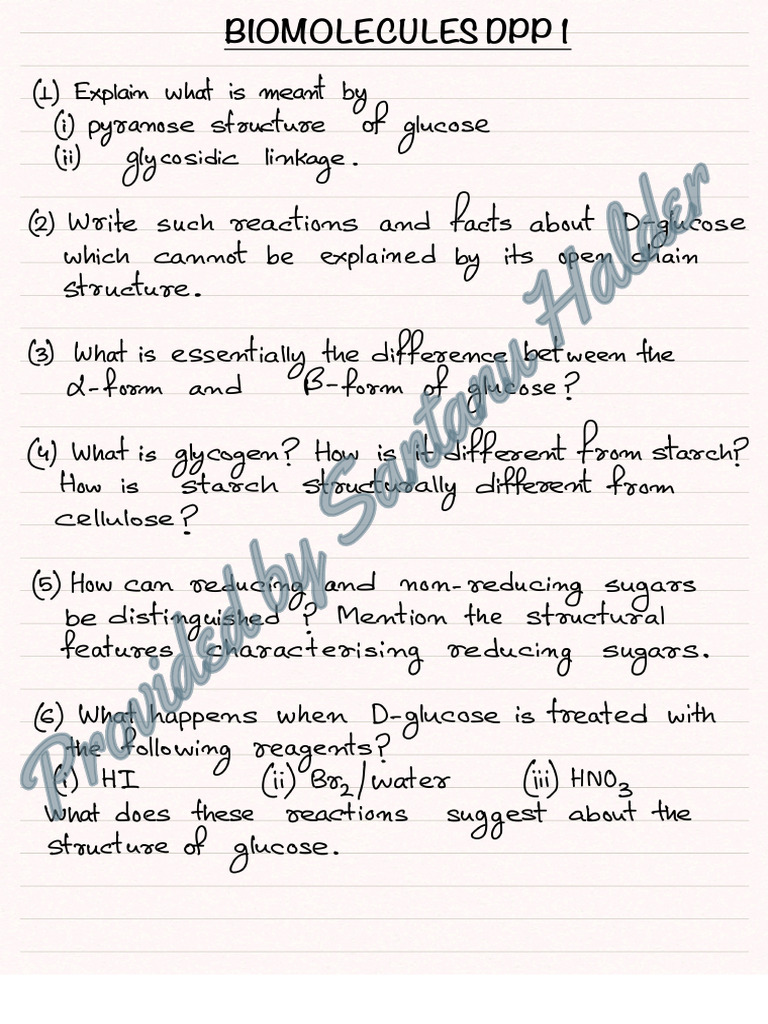 BIOMOLECULES DPP 1
(1) Explain what is meant by
(i) pyranose structure of glucose
(ii) glycosidic linkage.
(2) Write such reactions and facts about D-glucose
which cannot be explained by its open chain
structure.
(3) What is essentially the difference between the
α-form and β-form of glucose?
(4) What is glycogen? How is it different from starch?
How is starch structurally different from
cellulose?
(5) How can reducing and non-reducing sugars
be distinguished? Mention the structural
features characterising reducing sugars.
(6) What happens when D-glucose is treated with
the following reagents?
(i) HI (ii) Br₂/water (iii) HNO₃
What does these reactions suggest about the
structure of glucose.
Provided by Santanu Halder